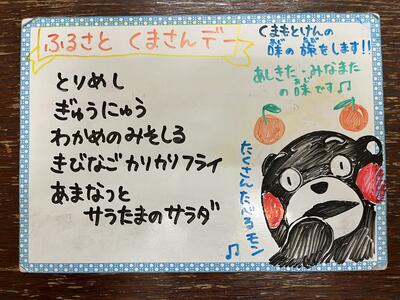 ふるさと くまさんデー
とりめし
ぎゅうにゅう
わかめのみそしる
きびなごカリカリフライ
あまなっと
サラたまのサラダ
くまもとけんの
味の旅をします!!
あじ たび
あしきた・みなまた
の味です♪
あじ
たくさんたべるモン♪